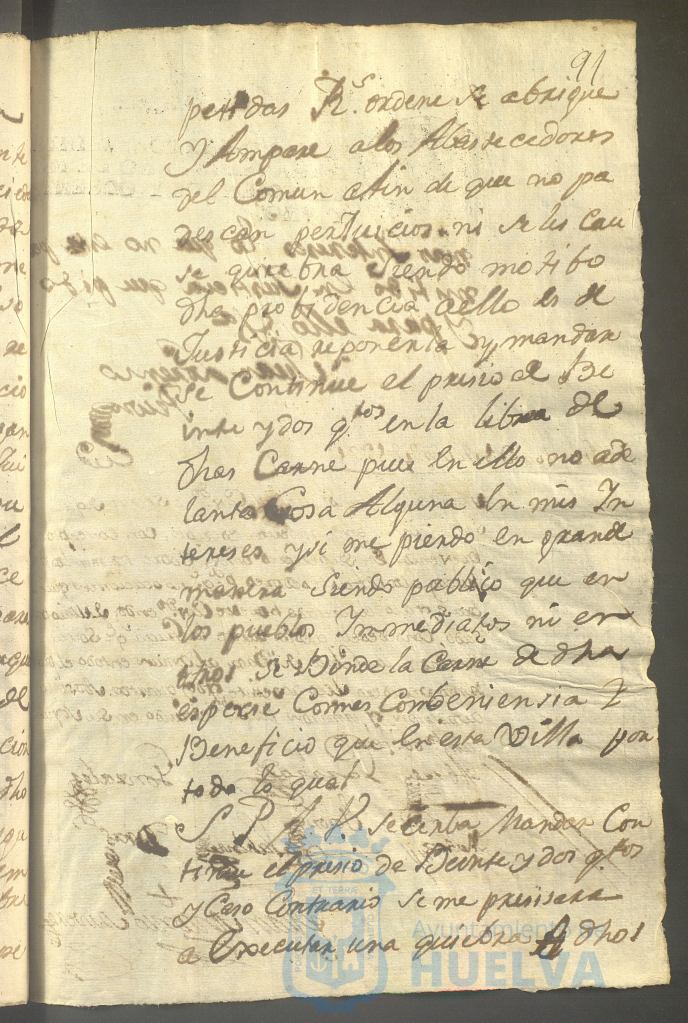 91
petidas Rs. ordene se abrigue
y Ampare a los Abastecedores
del Comun afin de que no pa
descan perjuicios ni se les cau
se quiebra siendo motibo
dha probidencia aello es de
Justicia reponerla y mandar
se Continue el presio de Be
inte y dos qtos en la libra de
dhas Carne pues en ello no ade
lanta Cosa Alguna en mis In
tereses y si me pierdo en grande
manera siendo publico que en
los pueblos Inmediatos ni en
se bende la Carne de dha
espesie Comes Combeniensia y
Beneficio que en esta Villa por
todo lo qual
S. P. A V. se cirba Mandar Con
tinue el presio de Beinte y dos qtos
y Caso Contrario se me presisara
a Executar una quiebra A dhos
Ayuntamiento de
HUELVA